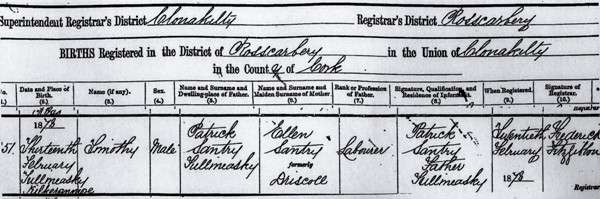 Superintendent Registrar's District Clonakilty Registrar's District Rosscarbery
BIRTHS Registered in the District of Rosscarbery in the Union of Clonakilty
in the County of Cork
No. Date and Place of Birth. (2.) Name (if any). (3.) Sex. (4.) Name and Surname and Dwelling-place of Father. (5.) Name and Surname and Maiden Surname of Mother. (6.) Rank or Profession of Father. (7.) Signature, Qualification, and Residence of Informant. (8.) When Registered. (9.) Signature of Registrar. (10.)
1878
51 Thirteenth February Killmeasky Kilkeranmoe
Timothy
Male
Patrick Santry Killmeasky
Ellen Santry formerly Driscoll
Labourer
Patrick Santry Father Killmeasky
Twentieth February 1878
Frederick